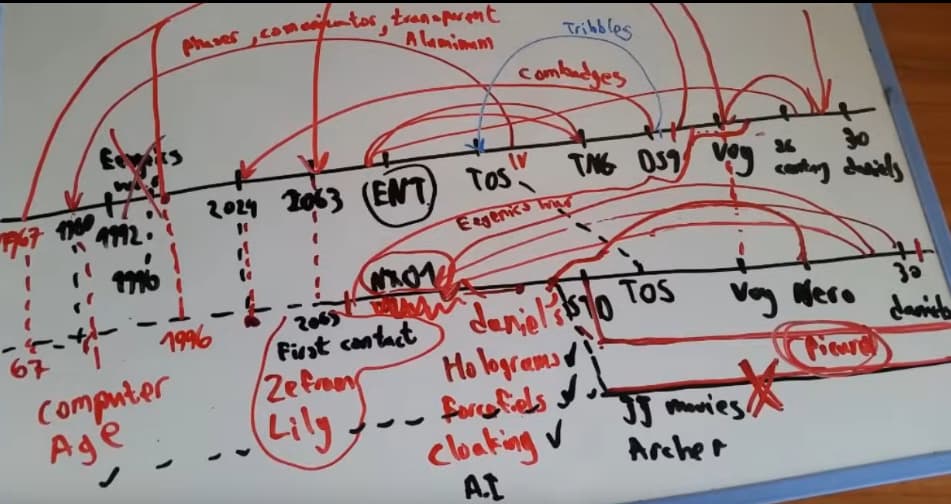 phaser, comunicator, transparent
Aluminum
Tribbles
combadges
Eugenics
1967
1992
1996
2024
2063
ENT
TOS
IV
TNG
DS9
Voy
26
century
30
daniels
Eegenics war
NX01
67
1996
2063
First contact
Zefram
Lily
Computer
Age
daniel's
Holograms ✓
forcefiels ✓
cloaking ✓
A.I
TOS
Voy
Nero
30
daniels
Picard
JJ movies
Archer